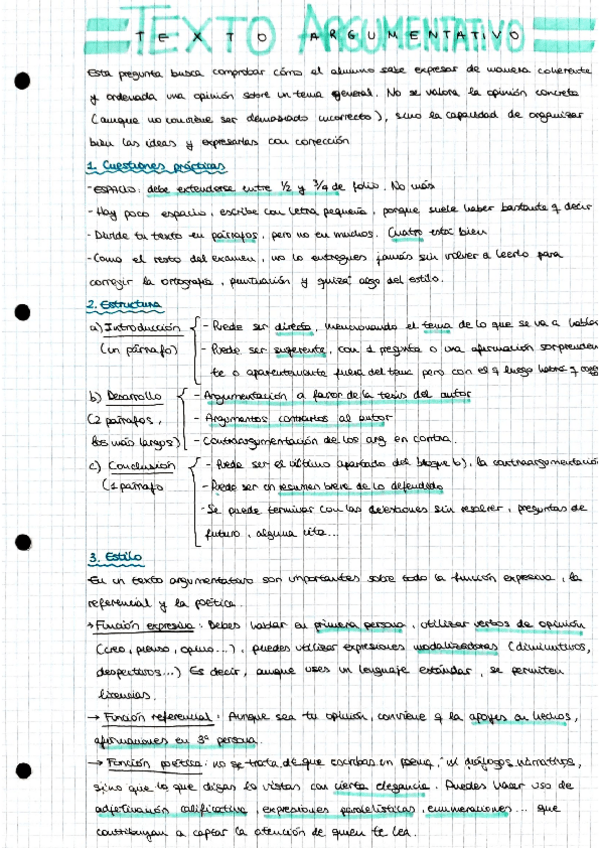 TEXTO ARGUMENTATIVO
Esta pregunta busca comprobar cómo el alumno sabe expresar de manera coherente
y ordenada una opinión sobre un tema general. No se valora la opinión concreta
(aunque no conviene ser demasiado incorrecto), sino la capacidad de organizar
bien las ideas y expresarlas con corrección
1. Cuestiones prácticas
- ESPACIO: debe extenderse entre 1/2 y 3/4 de folio. No más
- Hay poco espacio, escribe con letra pequeña, porque suele haber bastante q decir
- Divide tu texto en párrafos, pero no en muchos. Cuatro está bien
- Como el resto del examen, no lo entregues jamás sin volver a leerlo para
corregir la ortografía, puntuación y quizá algo del estilo.
2. Estructura
a) Introducción
(un párrafo)
- Puede ser directa, mencionando el tema de lo que se va a hablar
- Puede ser sugerente, con 1 pregunta o una afirmación sorprenden
te o aparentemente fuera del tema pero con el q luego habrá q
b) Desarrollo
(2 párrafos,
los más largos)
- Argumentación a favor de la tesis del autor
- Argumentos contrarios al autor
- Contraargumentación de los arg en contra.
c) Conclusión
(1 párrafo
- Puede ser el último apartado del bloque b), la contraargumentación
- Puede ser un resumen breve de lo defendido
- Se puede terminar con las sin resolver, preguntas de
futuro, alguna cita...
3. Estilo
En un texto argumentativo son importantes sobre todo la función expresiva, la
referencial y la poética.
→ Función expresiva: Debes hablar en primera persona, utilizar verbos de opinión
(creo, pienso, opino...), puedes utilizar expresiones modalizadoras (diminutivos,
despectivos...) Es decir, aunque uses un lenguaje estándar, se permiten
licencias.
→ Función referencial: Aunque sea tu opinión, conviene q la apoyes en hechos,
afirmaciones en 3ª persona.
→ Función poética: no se trata de que escribas un poema, ni diálogos narrativos,
sino que lo que digas lo vistas con cierta elegancia. Puedes hacer uso de
adjetivación calificativa, expresiones paralelísticas, enumeraciones... que
contribuyan a captar la atención de quien te lea.